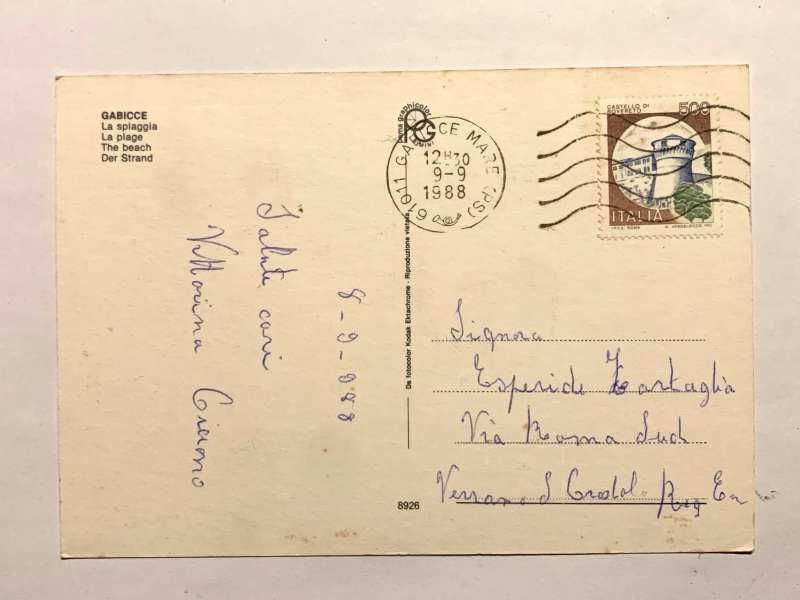 GABICCE
La spiaggia
La plage
The beach
Der Strand
8-9-988
Saluti cari
Vittorina
61011 GABICCE MARE (PS)
12H30
9-9
1988
De fotocolor Kodak Ektachrome - Riproduzione vietata
8926
CASTELLO DI
ROVERETO
500
ITALIA
Signora
Esperide Tartaglia
Via Roma Sud
Reg Em